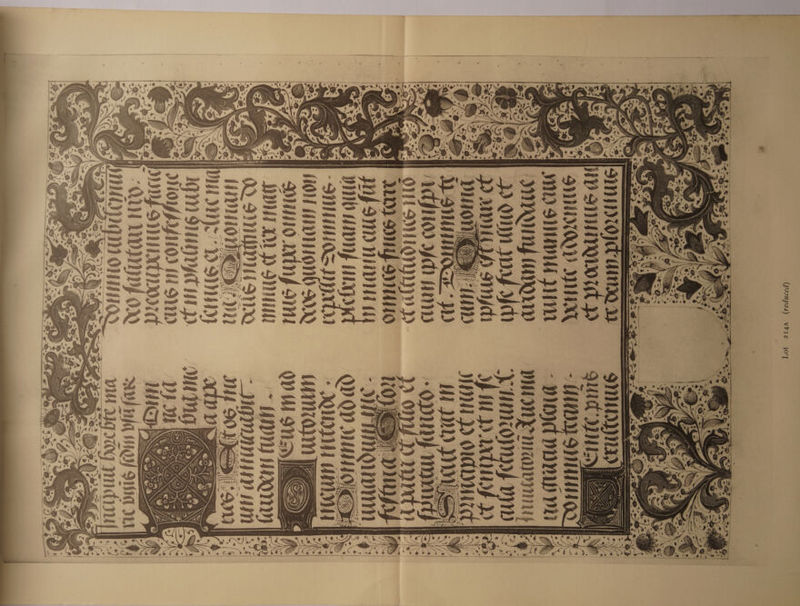 Incipiut hore bte ma
Dn
ne la
bia me
a ape
ries. Et os me
um annunciabit
laudem tuam.
Deus in ad
iutorium
meum intende.
Domine ad ad
iuuandum me
festina. Glori
a patri et filio et
spiritui sancto.
Sicut erat in
principio et nunc
et semper et in se
cula seculorum. A.
Inuitatoriu Aue ma
ria gracia plena.
Dominus tecum.
Uenite
domino iubilemus
deo salutari nro.
preoccupemus facie
eius in confessione
et in psalmis iubi
lemus ei. Aue ma
ria. Quoniam
deus magnus do
minus et rex mag
nus super omnes
deos quoniam non
repellet dominus
plebem suam quia
in manu eius sut
omnes fines terre
et altitudines mo
cium ipse conspi
cit. Dominus te
cum. Quoniam
ipsius est mare et
ipse fecit illud et
aridam fundaue
runt manus eius
venite adoremus
et procidamus an
te deum ploremus
Lot 214a (reduced)